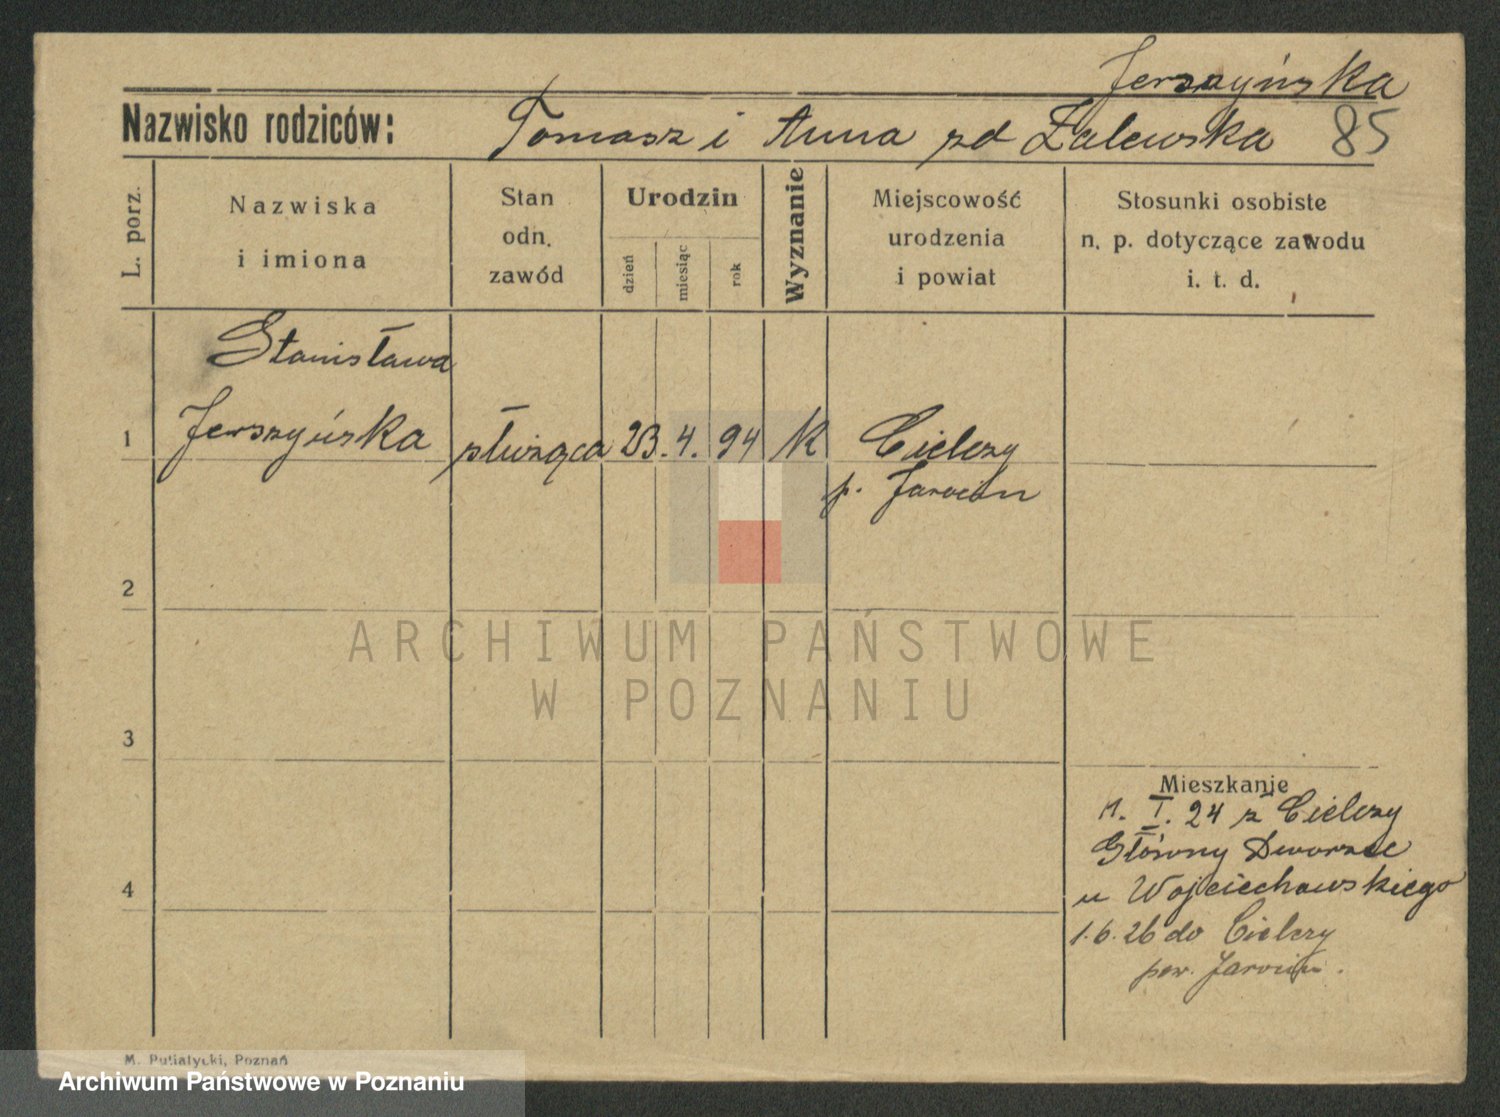 Jerszyńska
Nazwisko rodziców: Tomasz i Anna zd Zalewska 85
L. porz.
Nazwiska
i imiona
Stan
odn.
zawód
Urodzin
dzień
miesiąc
rok
Wyznanie
Miejscowość
urodzenia
i powiat
Stosunki osobiste
n. p. dotyczące zawodu
i. t. d.
Stanisława
1 Jerszyńska służąca 23. 4. 94 K Cielczy
p. Jarocin
2
ARCHIWUM PAŃSTWOWE
W POZNANIU
3
Mieszkanie
I. 24 z Cielczy
Główny Dworzec
4
u Wojciechowskiego
1.6.26 do Cielczy
pow. Jarocin.
M. Putiatycki, Poznań
Archiwum Państwowe w Poznaniu